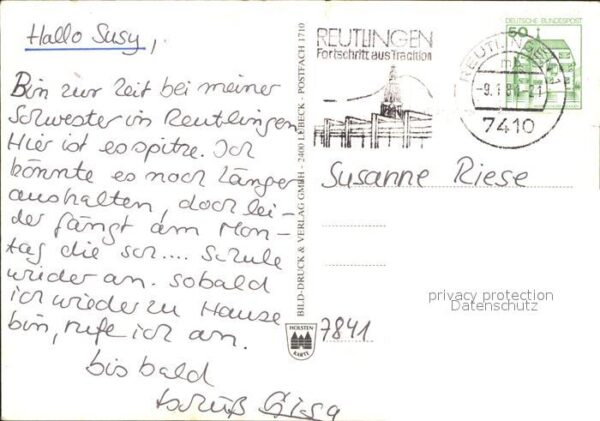 Hallo Susy,
Bin zur Zeit bei meiner
Schwester in Reutlingen
Hier ist es spitze. Ich
könnte es noch länger
aushalten, doch lei-
der fängt am Mon-
tag die sch.... Schule
wieder an. sobald
ich wieder zu Hause
bin, rufe ich an.
bis bald
tschüß Gisa
BILD-DRUCK & VERLAG GMBH - 2400 LEBECK - POSTFACH 1710
HOLSTEN
KARTE
REUTLINGEN
Fortschritt aus Tradition
REUTLINGEN 1
mb
-9.1.84-21
7410
50
DEUTSCHE BUNDESPOST
Susanne Riese
privacy protection
Datenschutz
7841